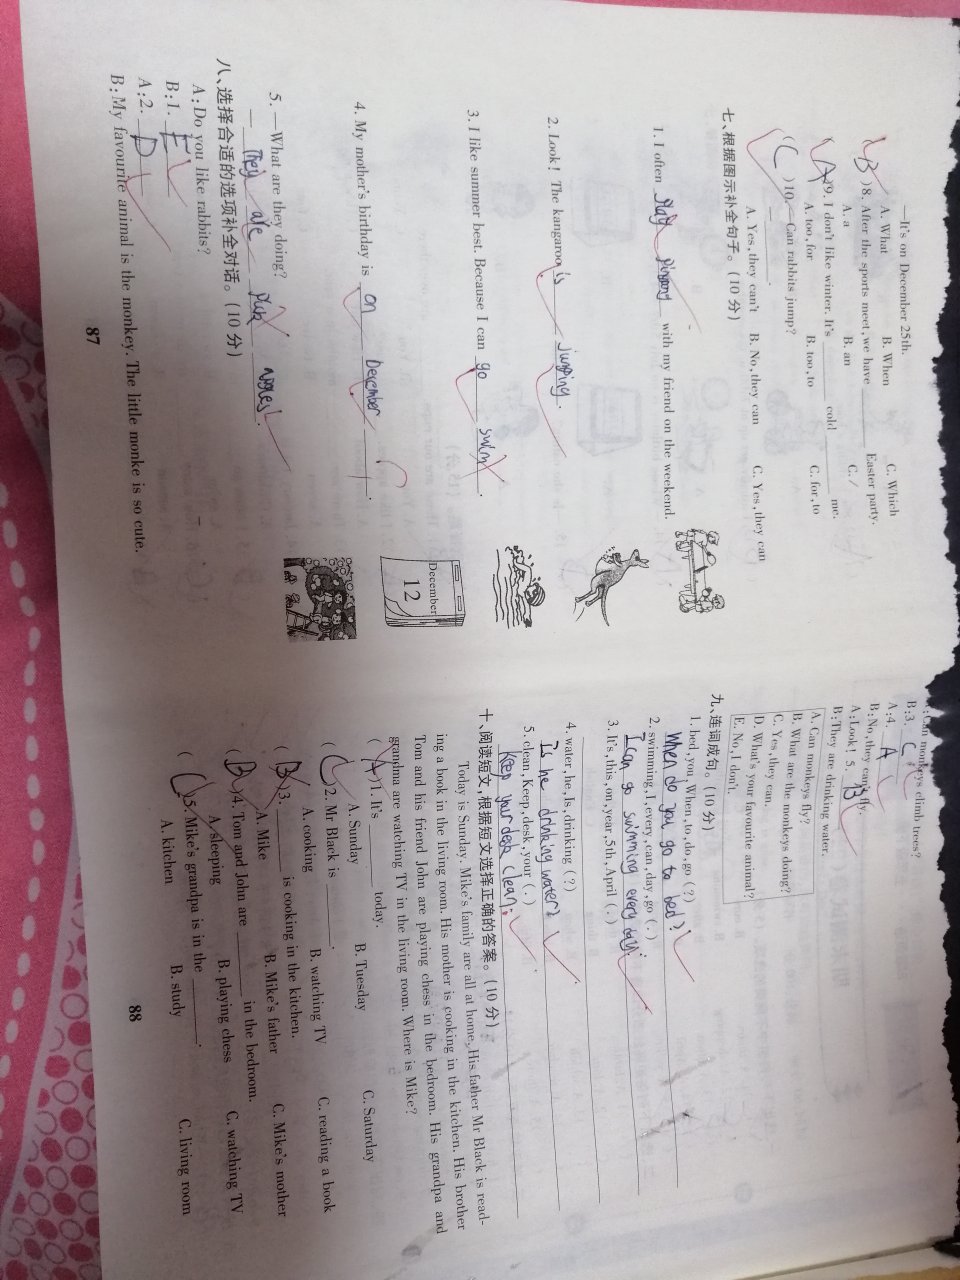 —It's on December 25th.
A. What B. When C. Which
(B)8. After the sports meet,we have ______ Easter party.
A. a B. an C. /
(A)9. I don't like winter. It's ______ cold ______ me.
A. too,for B. too,to C. for,to
(C)10.—Can rabbits jump?
—______.
A. Yes,they can't B. No,they can C. Yes,they can
七、根据图示补全句子。(10 分)
1. I often play with my friend on the weekend.
2. Look! The kangaroo is jumping.
3. I like summer best. Because I can go swim.
4. My mother's birthday is on December ______.
5. —What are they doing?
—They are apples.
八、选择合适的选项补全对话。(10 分)
A:Do you like rabbits?
B:1. E
A:2. D
B:My favourite animal is the monkey. The little monke is so cute.
87
December
12
A:Can monkeys climb trees?
B:3. C
A:4. A
B:No,they can't fly.
A:Look! 5. B
B:They are drinking water.
A. Can monkeys fly?
B. What are the monkeys doing?
C. Yes,they can.
D. What's your favourite animal?
E. No,I don't.
九、连词成句。(10 分)
1. bed,you,When,to,do,go(?)
When do you go to bed?
2. swimming,I,every,can,day,go(.)
I can go swimming every day.
3. It's,this,on,year,5th,April(.)
4. water,he,Is,drinking(?)
Is he drinking water?
5. clean,Keep,desk,your(.)
Keep your desk clean.
十、阅读短文,根据短文选择正确的答案。(10 分)
Today is Sunday. Mike's family are all at home. His father Mr Black is read-
ing a book in the living room. His mother is cooking in the kitchen. His brother
Tom and his friend John are playing chess in the bedroom. His grandpa and
grandma are watching TV in the living room. Where is Mike?
(A)1. It's ______ today.
A. Sunday B. Tuesday C. Saturday
(C)2. Mr Black is ______.
A. cooking B. watching TV C. reading a book
(B)3. ______ is cooking in the kitchen.
A. Mike B. Mike's father C. Mike's mother
(B)4. Tom and John are ______ in the bedroom.
A. sleeping B. playing chess C. watching TV
(C)5. Mike's grandpa is in the ______.
A. kitchen B. study C. living room
88